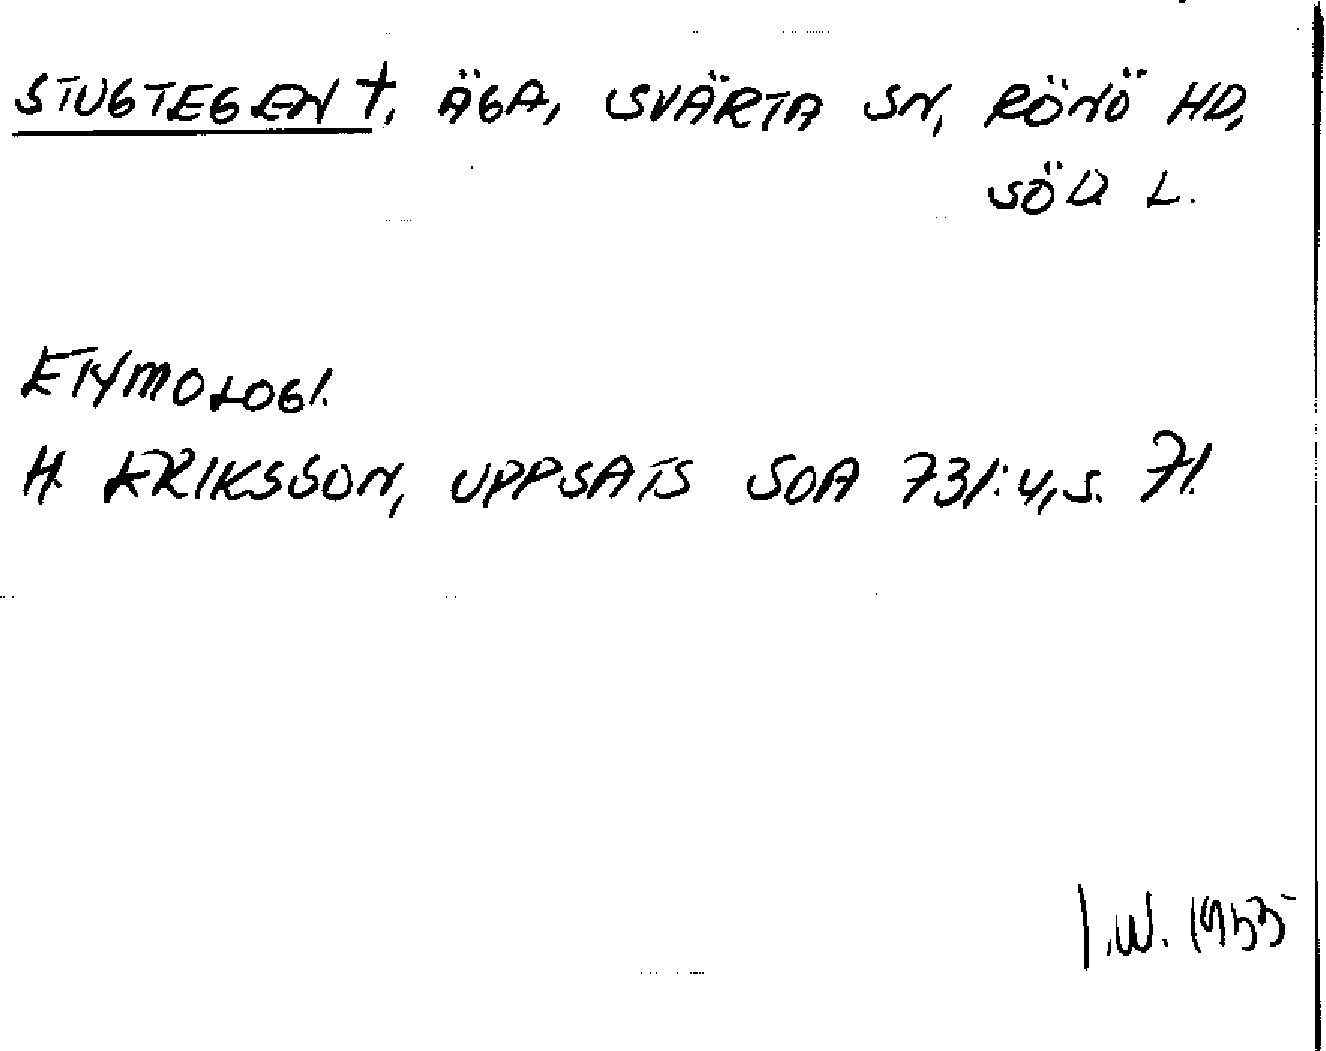 STUGTEGEN †, ÄGA, SVÄRTA SN, RÖNÖ HD,
SÖD L.
ETYMOLOGI.
H. ERIKSSON, UPPSATS SOA 731:4, S. 71.
I.W. 1955